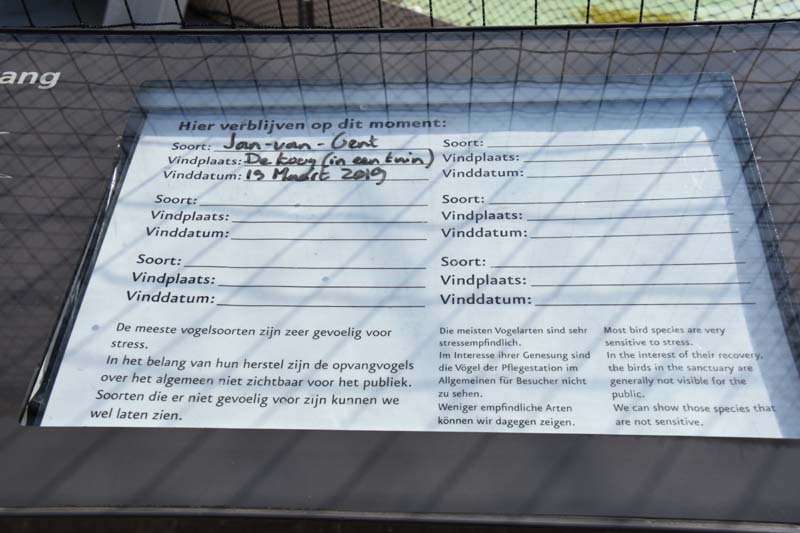 ang
Hier verblijven op dit moment:
Soort: Jan-van-Gent
Vindplaats: De Koog (in een tuin)
Vinddatum: 19 Maart 2019
Soort:
Vindplaats:
Vinddatum:
Soort:
Vindplaats:
Vinddatum:
Soort:
Vindplaats:
Vinddatum:
Soort:
Vindplaats:
Vinddatum:
Soort:
Vindplaats:
Vinddatum:
De meeste vogelsoorten zijn zeer gevoelig voor
stress.
In het belang van hun herstel zijn de opvangvogels
over het algemeen niet zichtbaar voor het publiek.
Soorten die er niet gevoelig voor zijn kunnen we
wel laten zien.
Die meisten Vogelarten sind sehr
stressempfindlich.
Im Interesse ihrer Genesung sind
die Vögel der Pflegestation im
Allgemeinen für Besucher nicht
zu sehen.
Weniger empfindliche Arten
können wir dagegen zeigen.
Most bird species are very
sensitive to stress.
In the interest of their recovery,
the birds in the sanctuary are
generally not visible for the
public.
We can show those species that
are not sensitive.